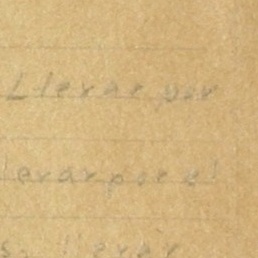 Llevar por
levar por el
llevar